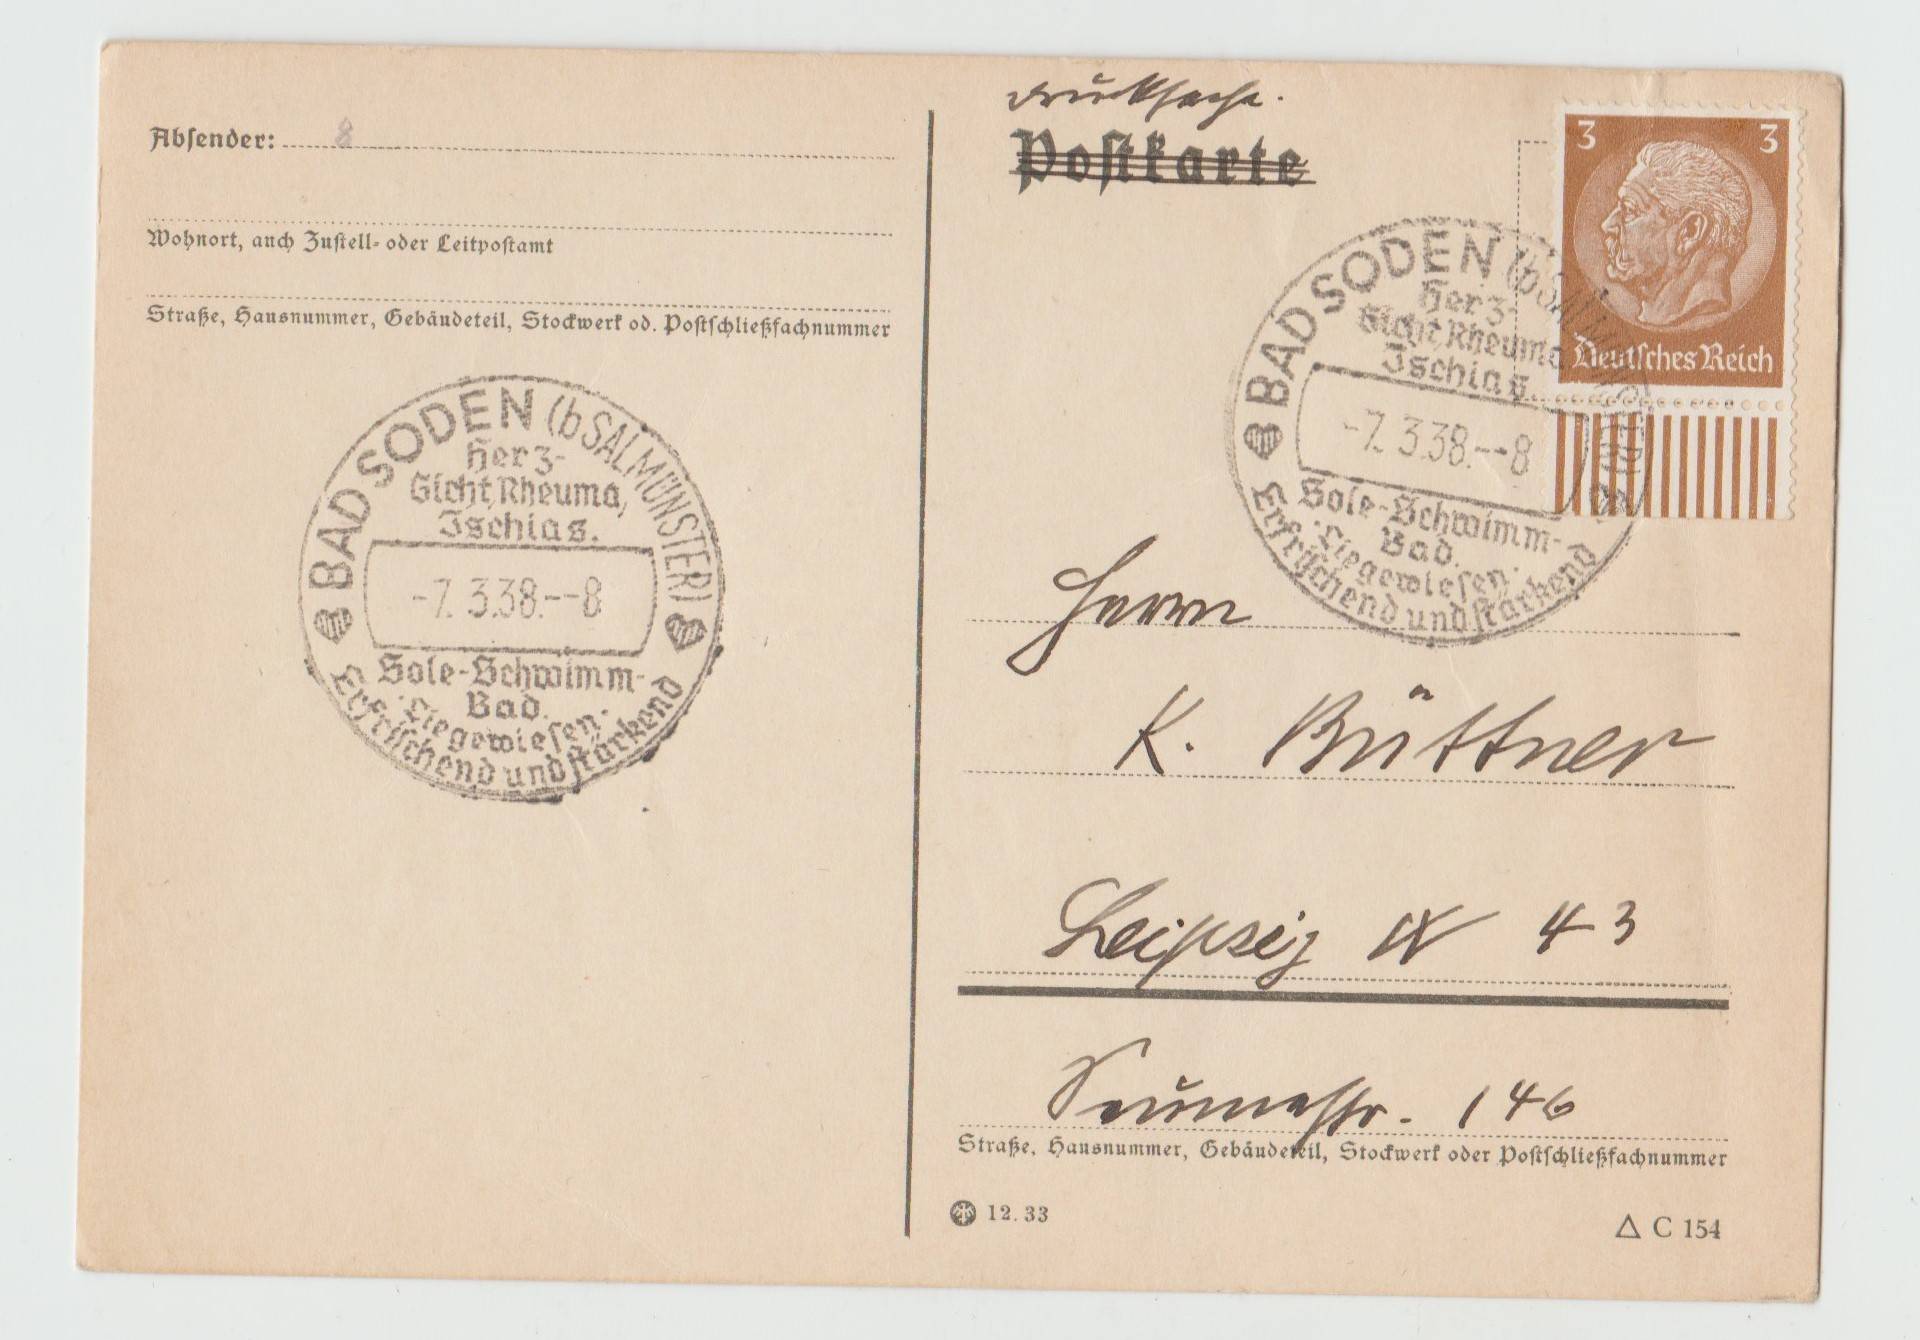 Absender: 8
Wohnort, auch Zustell- oder Leitpostamt
Straße, Hausnummer, Gebäudeteil, Stockwerk od. Postschließfachnummer
BAD SODEN (b SALMÜNSTER)
Herz-
Gicht, Rheuma,
Ischias.
-7. 3.38.--8
Sole-Schwimm-
Bad.
·Liegewiesen·
Erfrischend und stärkend
Drucksache.
Postkarte
3 3
Deutsches Reich
BAD SODEN (b SALMÜNSTER)
Herz-
Gicht, Rheuma,
Ischias.
-7. 3.38.--8
Sole-Schwimm-
Bad.
·Liegewiesen·
Erfrischend und stärkend
Herrn
K. Büttner
Leipzig N 43
Seumestr. 146
Straße, Hausnummer, Gebäudeteil, Stockwerk oder Postschließfachnummer
12. 33
△ C 154